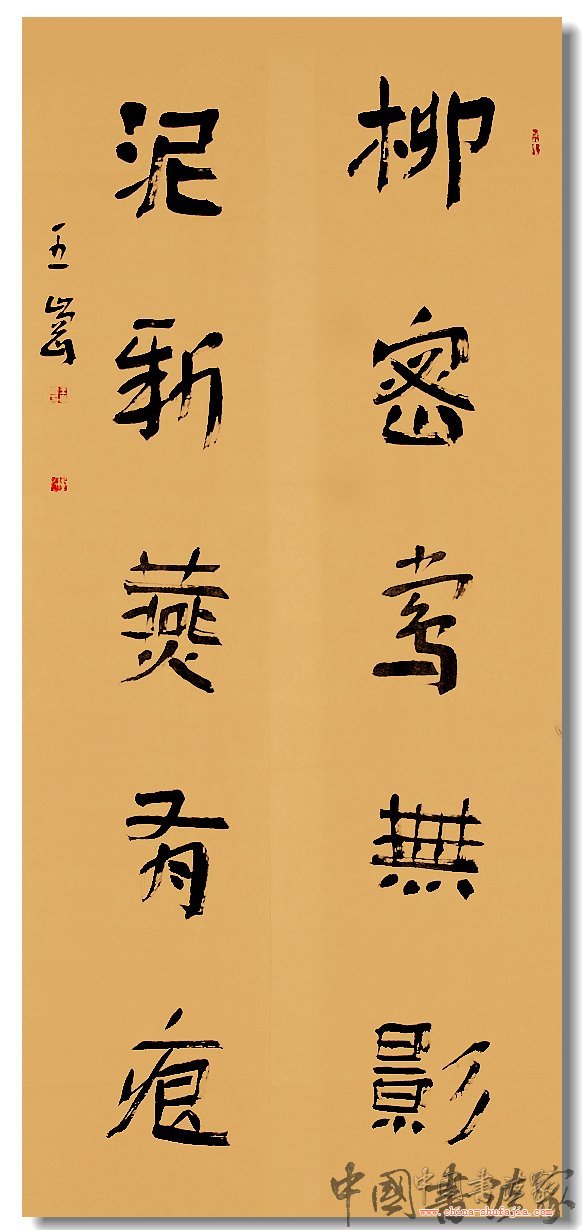 柳密莺無影
泥新燕有痕
中國書法家
www.china-shufajia.com